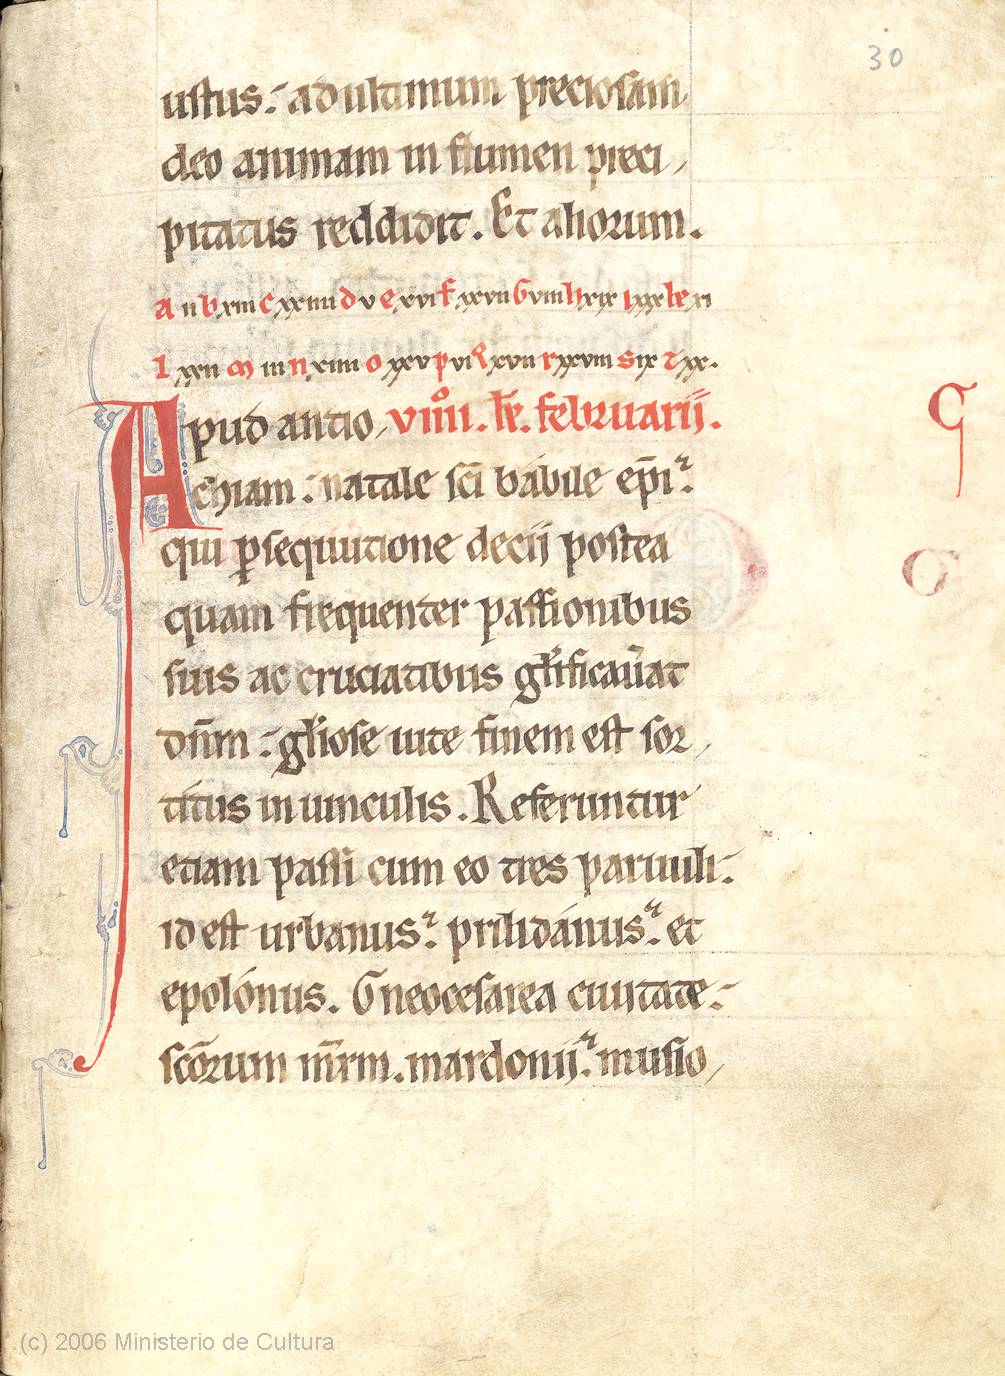 30
ustus: ad ultimum preciosam
deo animam in flumen preci
pitatus reddidit. Et aliorum.
A ii b xiii c xxiiii d v e xvi f xxvii G viii h xix i xxx k xi
l xxii m iii n xiiii o xxv p vi q xvii r xxviii s ix t xx.
Apud antio, viiiiº. kł. februarij.
chiam: natale sc̄i bábile ep̄i:
qui ꝑsequutione decij postea
quam frequenter passionibus
suis ac cruciatibus gl̄ificau̓at
dn̄m: gl̓iose uite finem est sor
titus in uinculis. Referuntur
etiam passi cum eo tres paruuli:
id est urbanus: prilidánus: et
epolónus. G neocesarea ciuitate:
scōrum m̄rm. mardonij: musio
C
(c) 2006 Ministerio de Cultura